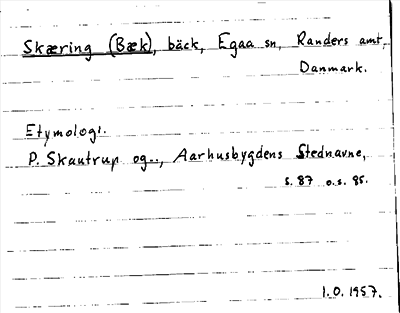 Skæring (Bæk), bäck, Egaa sn, Randers amt,
Danmark.
Etymologi.
P. Skautrup og.., Aarhusbygdens Stednavne,
s. 87 o.s. 95.
1.0. 1957.